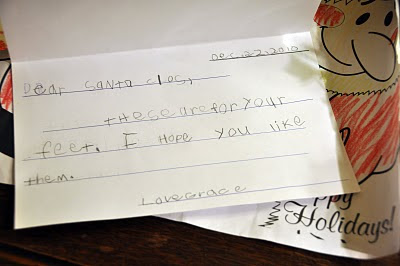 Dec 22, 2010
Dear santa clos,
these are for your
feet. I Hope you like
them.
Love Grace
ppy
Holidays!